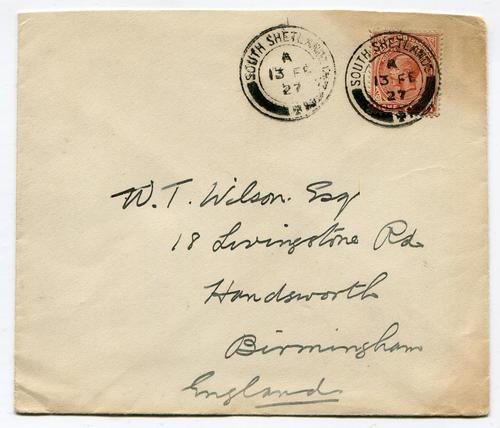 SOUTH SHETLANDS
A
13 FE
27
SOUTH SHETLANDS
A
13 FE
27
W. T. Wilson. Esq
18 Livingstone Rd
Handsworth
Birmingham
England